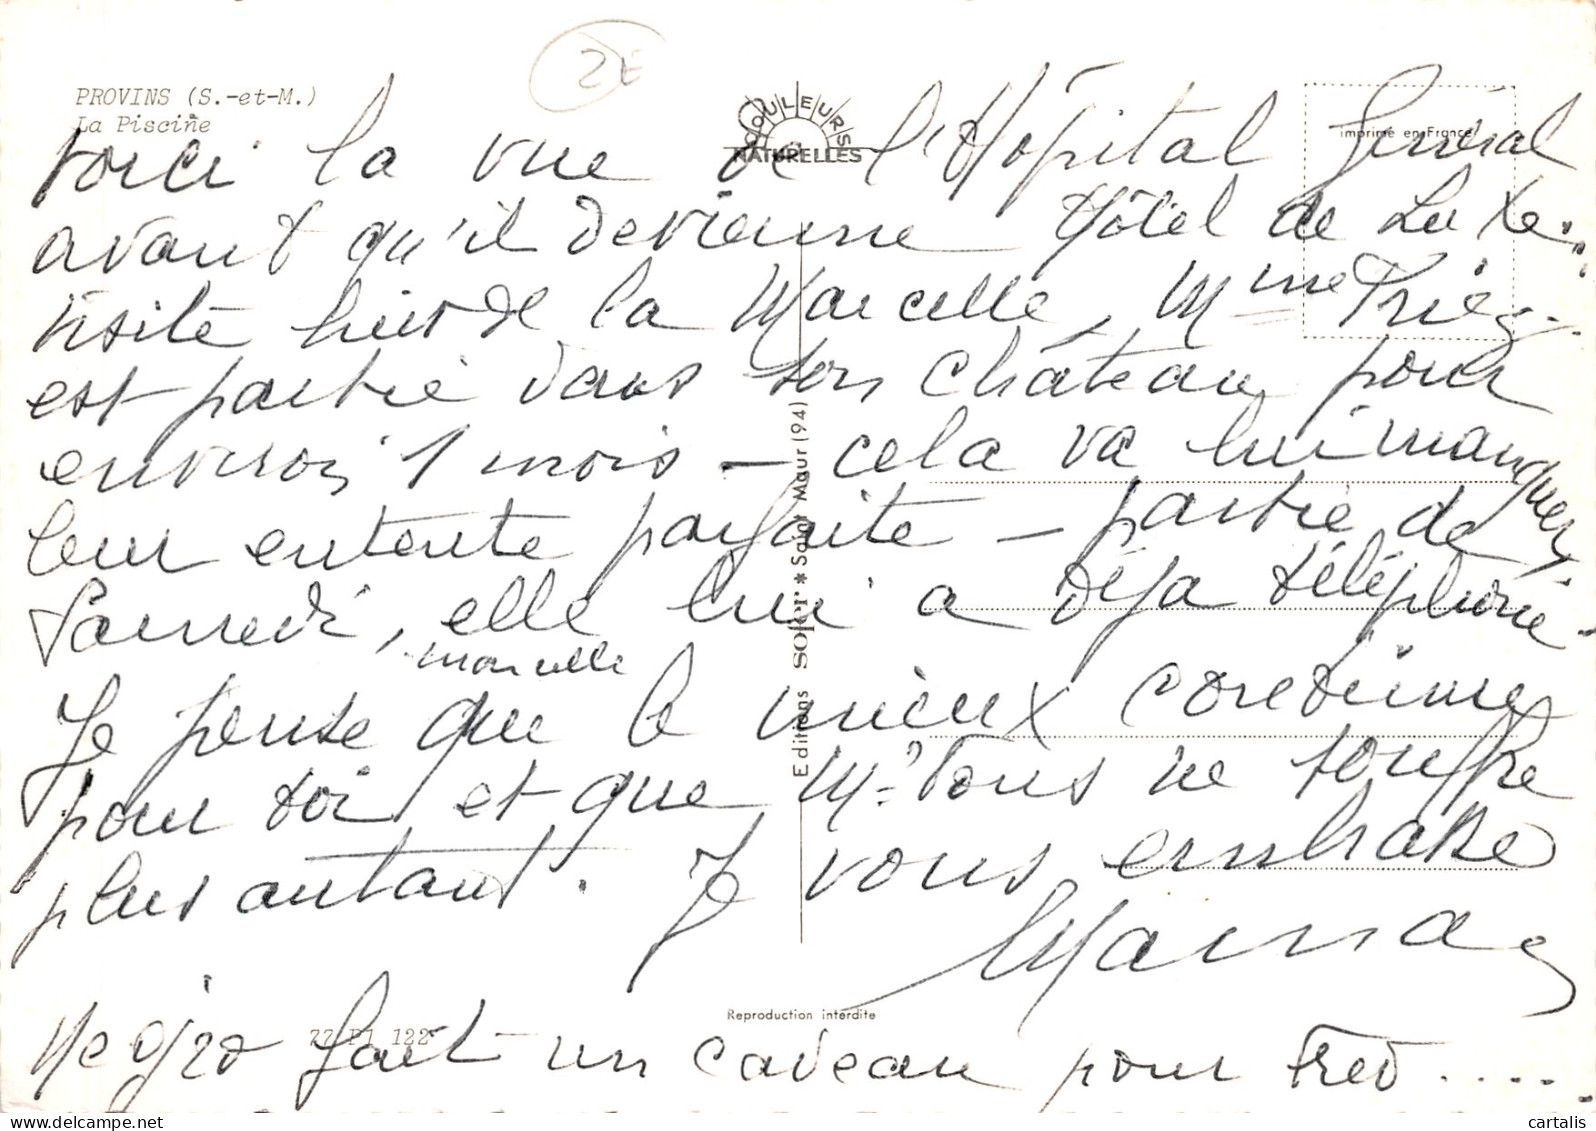 2€
PROVINS (S.-et-M.)
La Piscine
COULEURS
NATURELLES
imprimé en France
Voici la vue de l'Hôpital Général
avant qu'il devienne Hôtel de Luxe.
Visite hier de la Marcelle, Mme
est partie dans son château pour
environ 1 mois - cela va lui manquer,
leur entente parfaite - partie de
Samedi, elle lui a déjà téléphoné
marcelle
Je pense que le mieux continue
pour toi et que Mr Tous ne souffre
plus autant. Je vous embrasse
Mama
Negro fait un caveau pour Fred ....
Editions SOLEIR * Saint Maur (94)
Reproduction interdite
77 P1 122
cartalis
delcampe.net